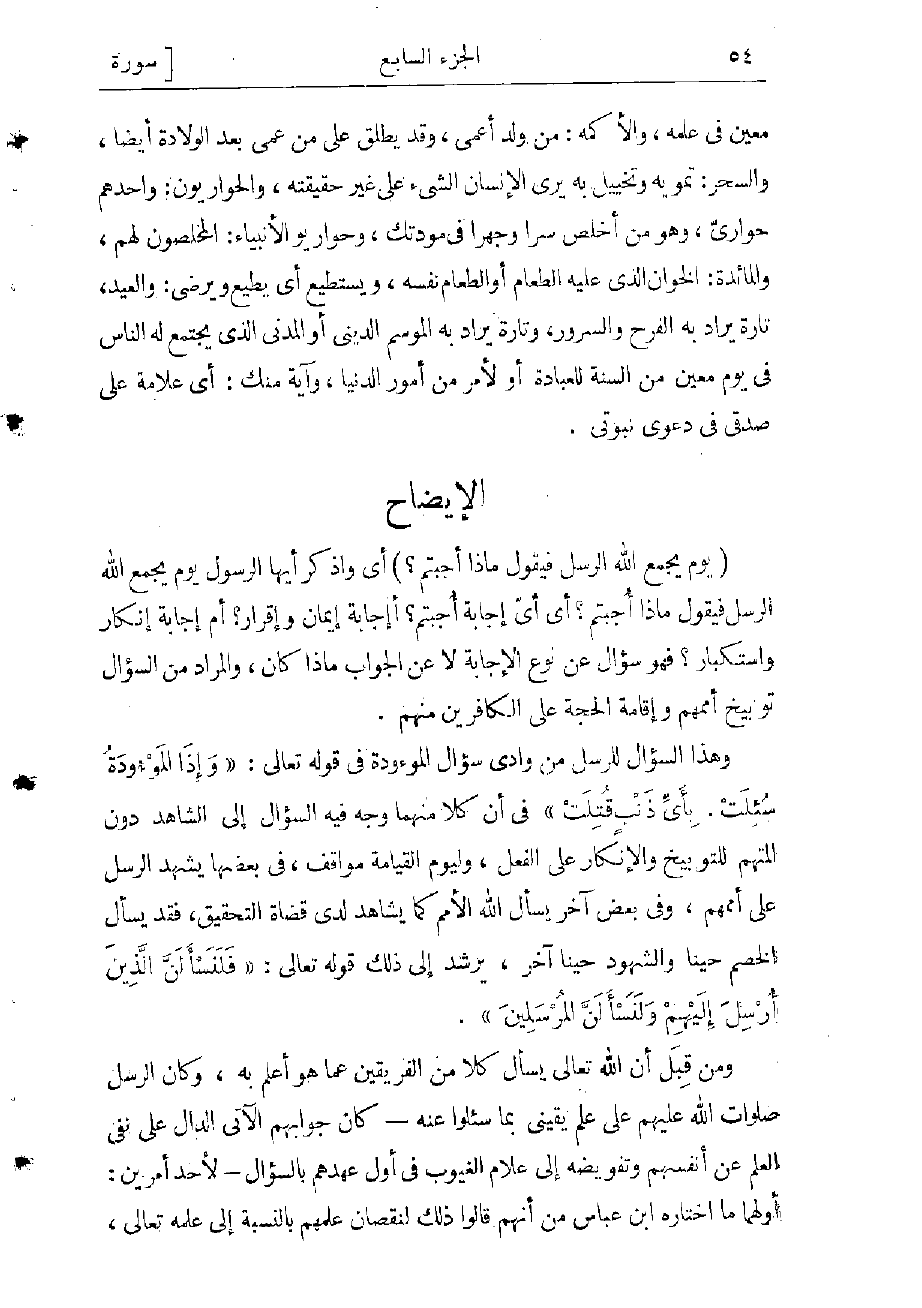 ٥٤ الجزء السابع [ سورة
معين فى علمه ، والأكمه : من ولد أعمى ، وقد يطلق على من عمى بعد الولادة أيضا ،
والسحر : تمويه وتخييل به يرى الإنسان الشىء على غير حقيقته ، والحواريون : واحدهم
حوارىّ ، وهو من أخلص سرا وجهرا فى مودتك ، وحواريو الأنبياء : المخلصون لهم ،
والمائدة : الخوان الذى عليه الطعام أو الطعام نفسه ، ويستطيع أى يطيع ويرضى : والعيد،
تارة يراد به الفرح والسرور، وتارة يراد به الموسم الدينى أو المدنى الذى يجتمع له الناس
فى يوم معين من السنة للعبادة أو لأمر من أمور الدنيا ، وآية منك : أى علامة على
صدقى فى دعوى نبوتى .
الإيضاح
( يوم يجمع الله الرسل فيقول ماذا أجبتم ؟ ) أى واذكر أيها الرسول يوم يجمع الله
الرسل فيقول ماذا أُجبتم ؟ أى أىّ إجابة أُجبتم ؟ أإجابة إيمان وإقرار؟ أم إجابة إنكار
واستكبار ؟ فهو سؤال عن نوع الإجابة لا عن الجواب ماذا كان ، والمراد من السؤال
توبيخ أممهم وإقامة الحجة على الكافرين منهم .
وهذا السؤال للرسل من وادى سؤال الموءودة فى قوله تعالى : « وَإِذَا الْمَوْءُودَةُ
سُئِلَتْ . بِأَىِّ ذَنْبٍ قُتِلَتْ » فى أن كلا منهما وجه فيه السؤال إلى الشاهد دون
المتهم للتوبيخ والإنكار على الفعل ، وليوم القيامة مواقف ، فى بعضها يشهد الرسل
على أممهم ، وفى بعض آخر يسأل الله الأمم كما يشاهد لدى قضاة التحقيق، فقد يسأل
الخصم حينا والشهود حينا آخر ، يرشد إلى ذلك قوله تعالى : « فَلَنَسْأَلَنَّ الَّذِينَ
أُرْسِلَ إِلَيْهِمْ وَلَنَسْأَلَنَّ الْمُرْسَلِينَ » .
ومن قِبَل أن الله تعالى يسأل كلا من الفريقين عما هو أعلم به ، وكان الرسل
صلوات الله عليهم على علم يقينى بما سئلوا عنه — كان جوابهم الآتى الدال على نفى
العلم عن أنفسهم وتفويضه إلى علام الغيوب فى أول عهدهم بالسؤال — لأحد أمرين :
أولهما ما اختاره ابن عباس من أنهم قالوا ذلك لنقصان علمهم بالنسبة إلى علمه تعالى ،